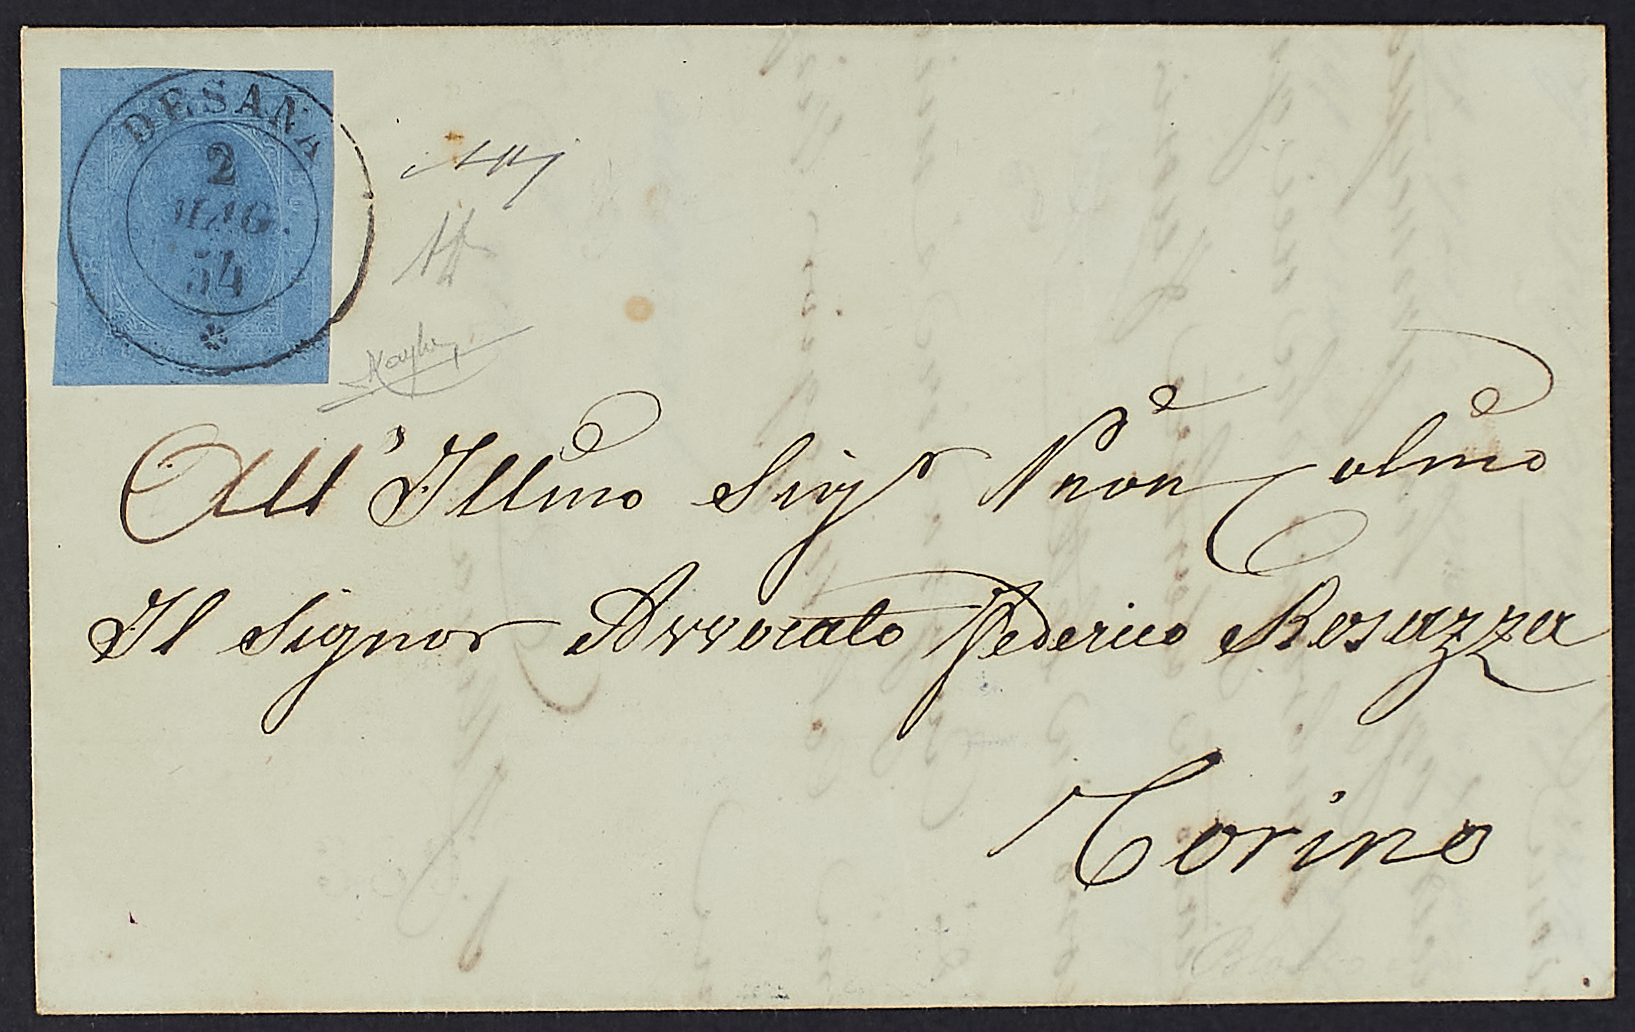 DESANA
2
MAG.
54
All' Illmo Sigr Pron Colmo
Il Signor Avvocato Federico Rosazza
Torino